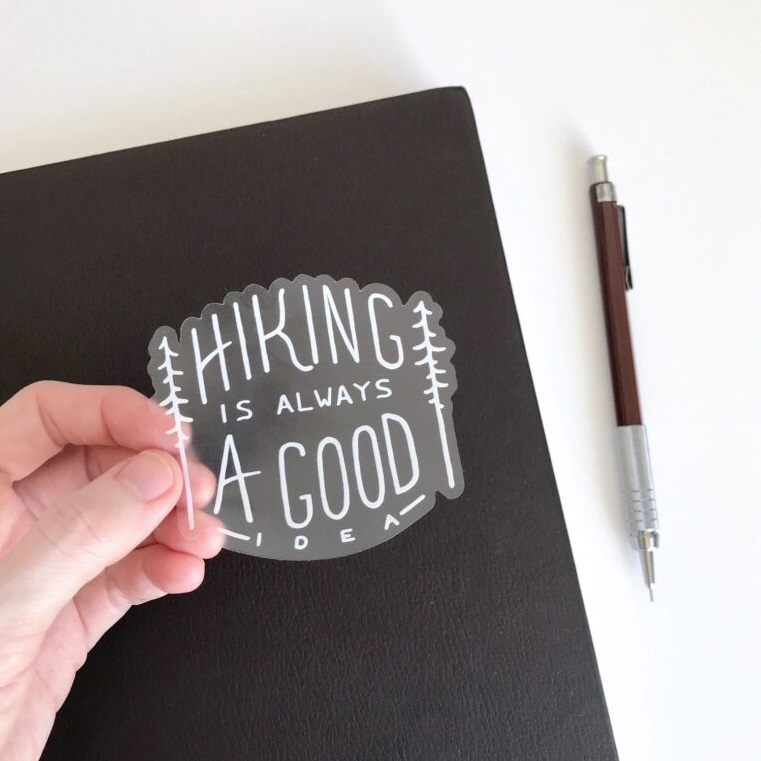 HIKING
IS ALWAYS
A GOOD
IDEA